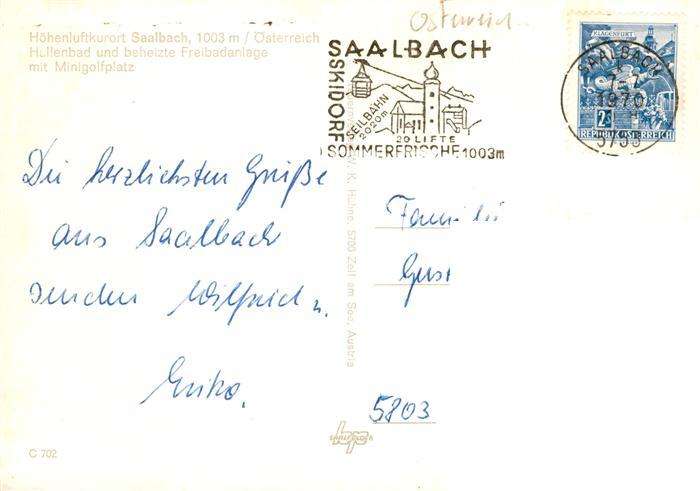 Höhenluftkurort Saalbach, 1003 m / Österreich
Hallenbad und beheizte Freibadanlage
mit Minigolfplatz
Österreich
SAALBACH
SKIDORF
SEILBAHN
2020m
20 LIFTE
SOMMERFRISCHE 1003m
KLAGENFURT
2S
REPUBLIK ÖSTERREICH
SAALBACH
1970
5753
Die herzlichsten Grüße
aus Saalbach
senden Wilfried u.
Erika.
Familie
Gust
5803
W. K. Huhne, 5700 Zell am See, Austria
C 702